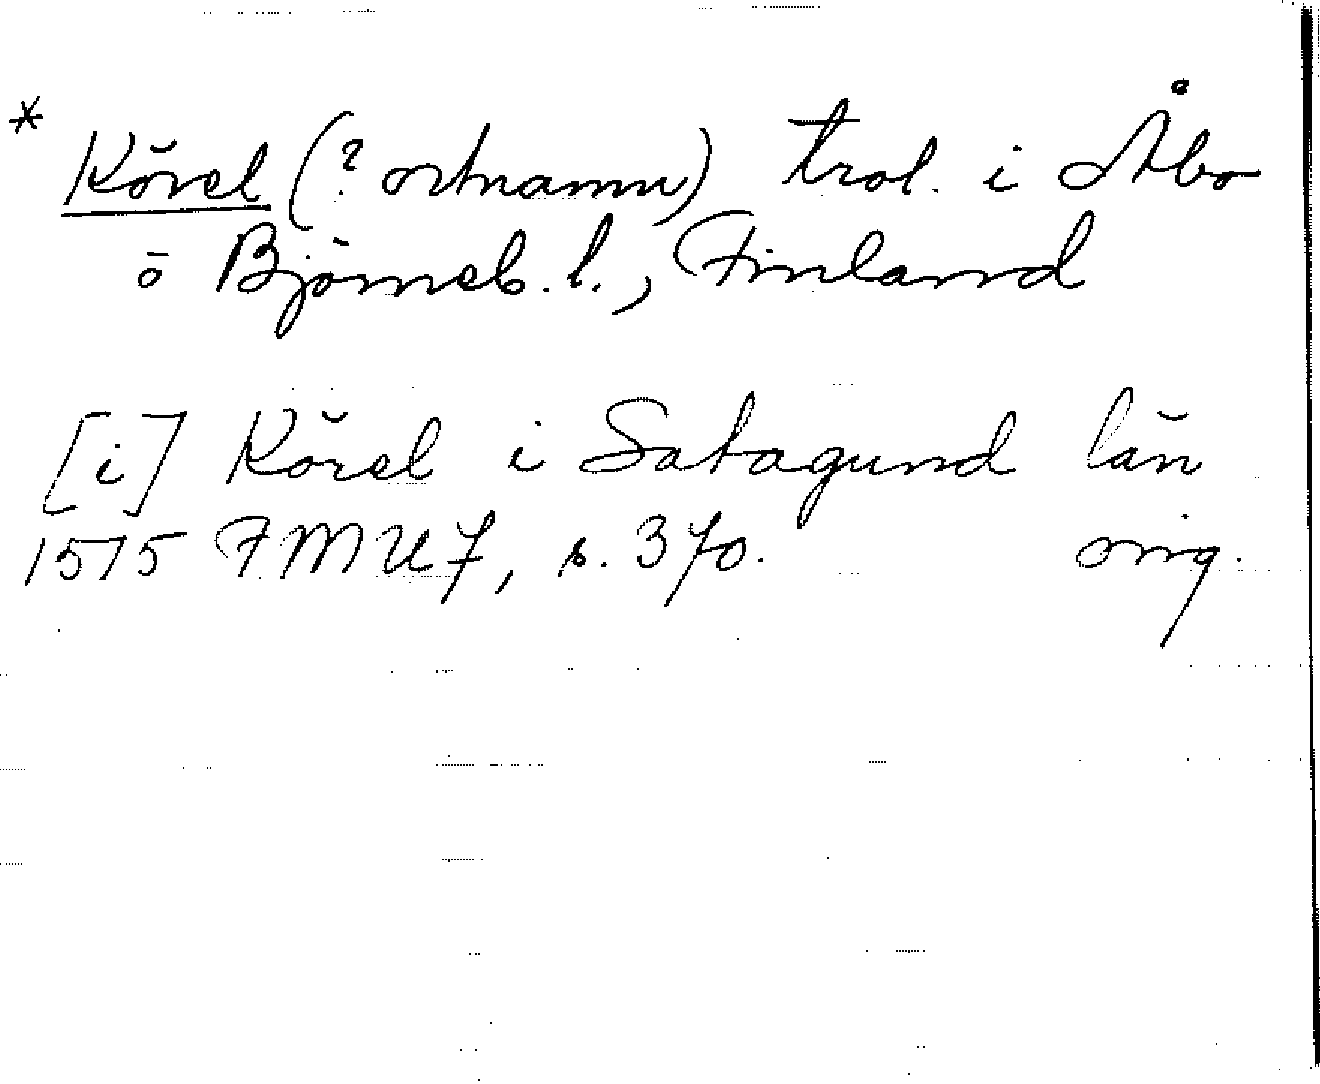 * Körel (? ortnamn) trol. i Åbo
o Björneb. l., Finland
[i] Körel i Satagund län
1515 FMU 7, s. 370. orig.